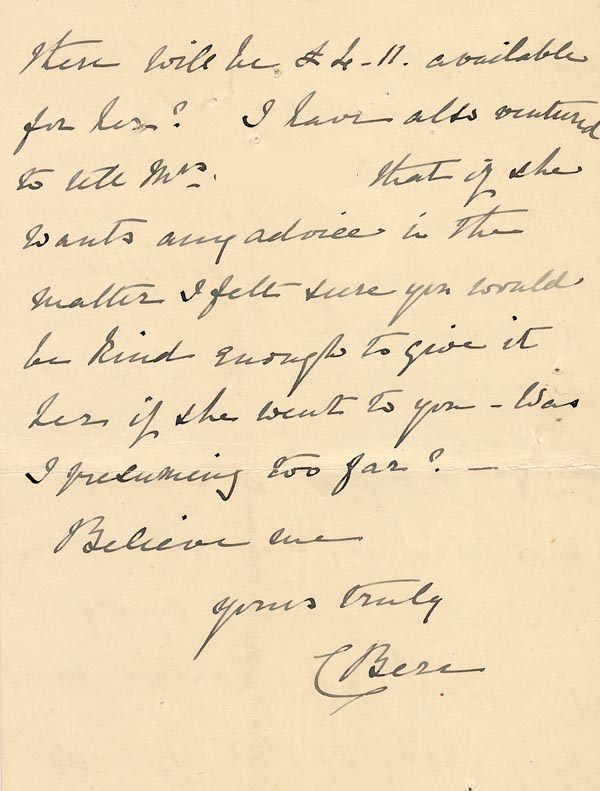 there will be £4-11. available
for her? I have also ventured
to tell Mrs. that if she
wants any advice in the
matter I felt sure you would
be kind enough to give it
her if she went to you - Was
I presuming too far? -
Believe me
yours truly
C Bere